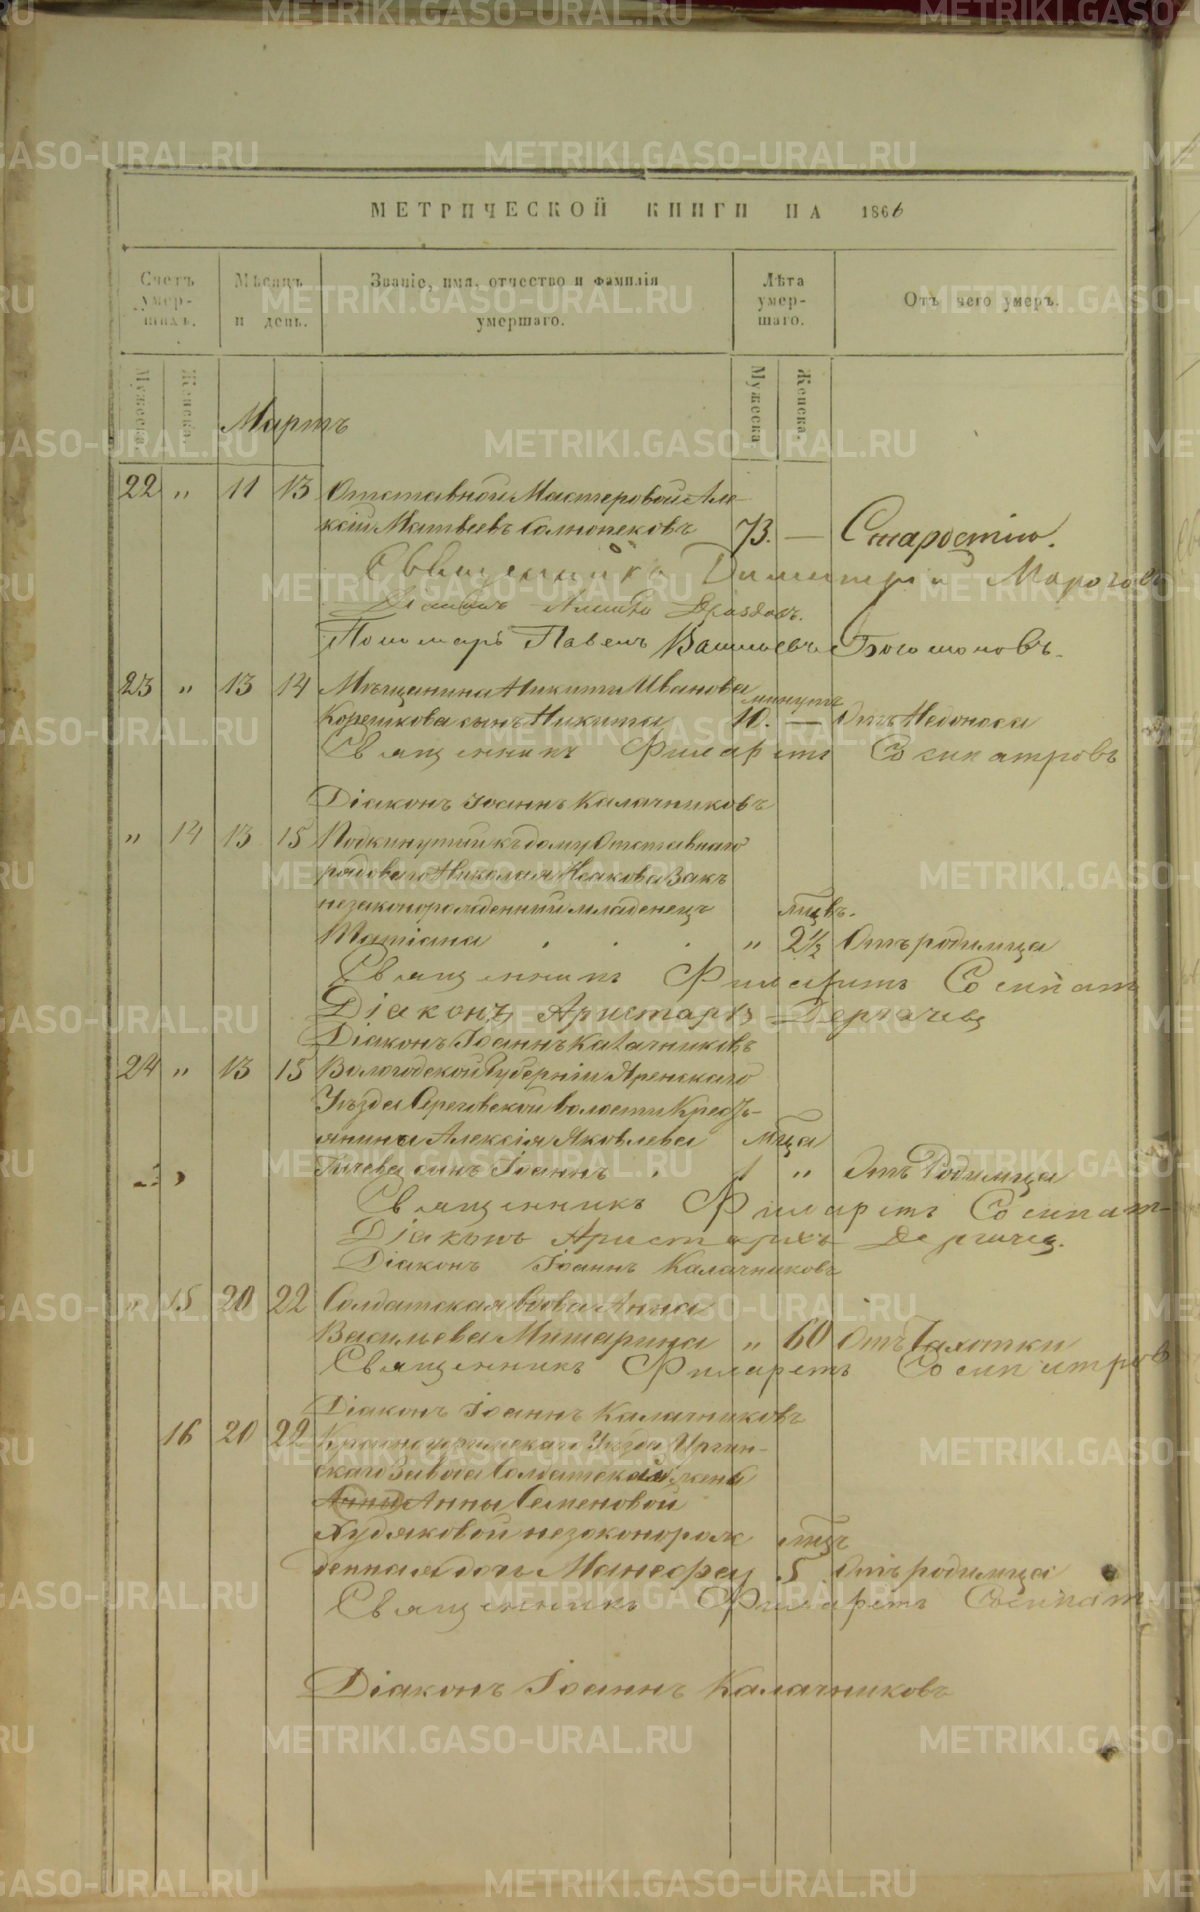 МЕТРИЧЕСКОЙ КНИГИ НА 1866
Счетъ умер-шихъ.
Мѣсяцъ и день.
Званіе, имя, отчество и фамилія умершаго.
Лѣта умер-шаго.
Отъ чего умеръ.
Мужеска Женска Мужеска. Женска.
Мартъ
22 „ 11 13 Отставной Мастеровой Але-
ксій Матвеевъ 73. — Старостію.
Священникъ Димитрій
Діаконъ
Пономарь Павелъ
23 „ 13 14 Мѣщанина Никиты Иванова минутъ
Корешкова сынъ Никита 10. — Отъ Недоноса
Священникъ Филаретъ Сосипатровъ
Діаконъ Іоаннъ Калачниковъ
„ 14 13 15 Подкинутый къ дому Отставнаго
рядоваго Николая Исакова Закъ
незаконорожденный младенецъ мцвъ.
Татіана „ 2 1/2 Отъ родимца
Священникъ Филаретъ Сосипат
Діаконъ Аристархъ Дергачевъ
Діаконъ Іоаннъ Калачниковъ
24 „ 13 15 Вологодской Губерніи Яренскаго
Уѣзда Сереговской волости Кресть-
янина Алексія Яковлева мца
Гичева сынъ Іоаннъ 1 „ Отъ Родимца
Священникъ Филаретъ Сосипат-
Діаконъ Аристархъ Дергачев.
Діаконъ Іоаннъ Калачниковъ
„ 15 20 22 Солдатская вдова Анна
Васильева Мишарина „ 60 Отъ Чахотки
Священникъ Филаретъ Сосипатров
Діаконъ Іоаннъ Калачниковъ
16 20 22 Красноуфимскаго Уѣзда Иргин-
скаго Завода Солдатской жены
Анны Семеновой
Худяковой незаконорож мцъ
денная дочь Манефа „ 5 Отъ родимца
Священникъ Филаретъ Сосипат
Діаконъ Іоаннъ Калачниковъ
METRIKI.GASO-URAL.RU